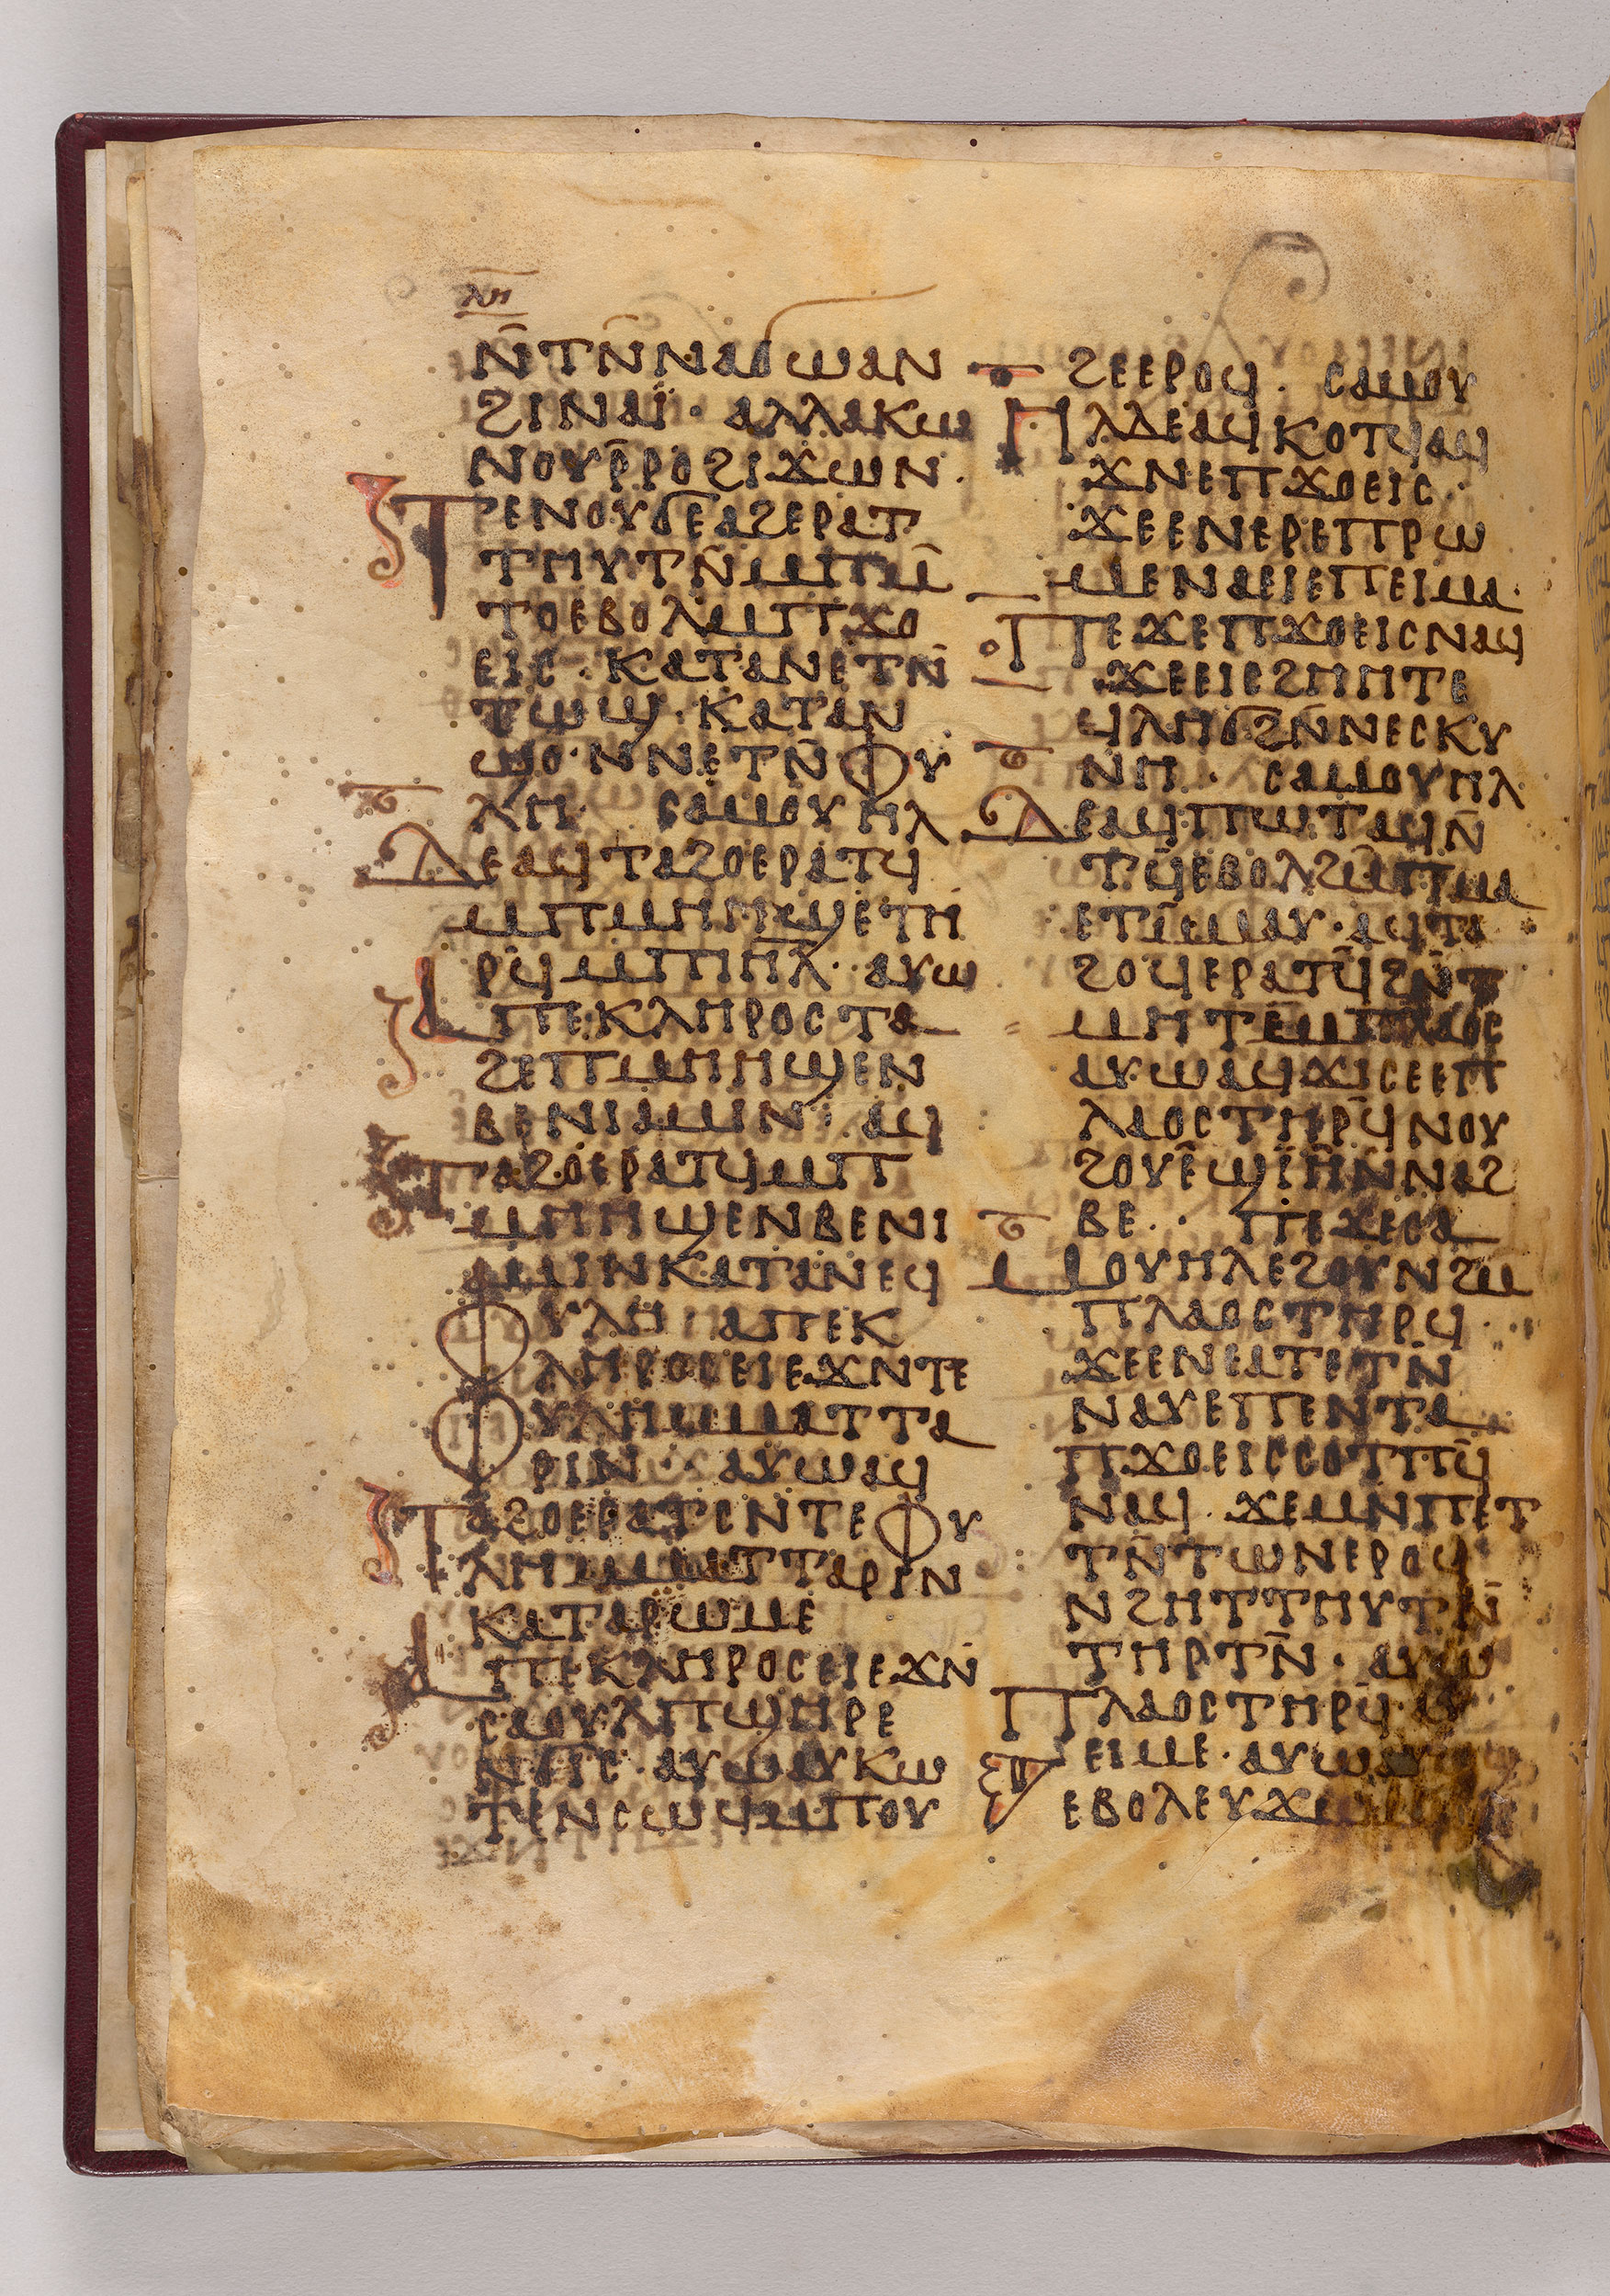 ⲗⲏ
ⲛ̄ⲧⲛ̄ⲛⲁϭⲱⲁⲛ
ϩⲓⲛⲁⲓ̈· ⲁⲗⲗⲁⲕⲱ
ⲛⲟⲩⲣ̄ⲣⲟϩⲓϫⲱⲛ·
ⲧⲉⲛⲟⲩϭⲉⲁϩⲉⲣⲁⲧ
ⲧⲏⲩⲧⲛ̄ⲙⲡⲙ̄
ⲧⲟⲉⲃⲟⲗⲙⲡϫⲟ
ⲉⲓⲥ· ⲕⲁⲧⲁⲛⲉⲧⲛ̄
ⲧⲱϣ· ⲕⲁⲧⲁⲛ
ϣⲟ· ⲛⲛⲉⲧⲛ̄ⲫⲩ
ⲗⲏ· ⲥⲁⲙⲟⲩⲏⲗ
ⲇⲉⲁϥⲧⲁϩⲟⲉⲣⲁⲧϥ
ⲙⲡⲙⲏⲏϣⲉⲧⲏ
ⲣϥ̄ⲙⲡⲓⲏ̄ⲗ̄· ⲁⲩⲱ
ⲁⲡⲉⲕⲗⲏⲣⲟⲥⲧⲁ
ϩⲉⲡⲙⲏⲏϣⲉⲛ
ⲃⲉⲛⲓⲁⲙⲓⲛ· ⲁϥ
ⲧⲁϩⲟⲉⲣⲁⲧϥⲙⲡ
ⲙⲏⲏϣⲉⲛⲃⲉⲛⲓ
ⲁⲙⲓⲛⲕⲁⲧⲁⲛⲉϥ
ⲫⲩⲗⲏ· ⲁⲡⲉⲕ
ⲗⲏⲣⲟⲥⲉⲓⲉϫⲛⲧⲉ
ⲫⲩⲗⲏⲙⲙⲁⲧⲧⲁ
ⲣⲓⲛ· ⲁⲩⲱⲁϥ
ⲧⲁϩⲟⲉⲣⲁⲧⲥⲛⲧⲉⲫⲩ
ⲗⲏⲙⲙⲁⲧⲧⲁⲣⲓⲛ
ⲕⲁⲧⲁⲣⲱⲙⲉ
ⲁⲡⲉⲕⲗⲏⲣⲟⲥⲉⲓⲉϫⲛ̄
ⲥⲁⲟⲩⲗⲡϣⲏⲣⲉ
ⲛϭⲓⲥ· ⲁⲩⲱⲁⲩⲕⲱ
ⲧⲉⲛⲥⲱϥⲙⲡⲟⲩ
ϩⲉⲉⲣⲟϥ· ⲥⲁⲙⲟⲩ
ⲏⲗⲇⲉⲁϥⲕⲟⲧϥⲁϥ
ϫⲛⲉⲡϫⲟⲉⲓⲥ·
ϫⲉⲉⲛⲉⲣⲉⲡⲣⲱ
ⲙⲉⲛⲁⲉⲓⲉⲡⲉⲓⲙⲁ·
ⲡⲉϫⲉⲡϫⲟⲉⲓⲥⲛⲁϥ
ϫⲉⲉⲓⲉϩⲏⲏⲧⲉ
ϥⲗⲏϭϩⲛ̄ⲛⲉⲥⲕⲩ
ⲛⲏ· ⲥⲁⲙⲟⲩⲏⲗ
ⲇⲉⲁϥⲡⲱⲧⲁϥⲛ̄
ⲧϥ̄ⲉⲃⲟⲗϩⲙ̄ⲡⲙⲁ
ⲉⲧⲙ̄ⲙⲁⲩ· ⲁϥⲧⲁ
ϩⲟϥⲉⲣⲁⲧϥ̄ϩⲛ̄ⲧ
ⲙⲏⲧⲉⲙⲡⲗⲁⲟⲥ
ⲁⲩⲱⲁϥϫⲓⲥⲉⲉⲡ
ⲗⲁⲟⲥⲧⲏⲣϥ̄ⲛⲟⲩ
ϩⲟⲩⲉ̄ϣⲓ̈ⲏ̄ⲛⲛⲁϩ
ⲃⲉ· ⲡⲉϫⲉⲥⲁ
ⲙⲟⲩⲏⲗⲉϩⲟⲩⲛϩⲙ
ⲡⲗⲁⲟⲥⲧⲏⲣϥ·
ϫⲉⲉⲛⲉⲁⲧⲉⲧⲛ̄
ⲛⲁⲩⲉⲡⲉⲛⲧⲁ
ⲡϫⲟⲉⲓⲥⲥⲟⲧⲡϥ̄
ⲛⲁϥ· ϫⲉⲙⲛⲡⲉⲧ
ⲧⲛ̄ⲧⲱⲛⲉⲣⲟϥ
ⲛϩⲏⲧⲧⲏⲩⲧⲛ̄
ⲧⲏⲣⲧⲛ̄· ⲁⲩⲱ
ⲡⲗⲁⲟⲥⲧⲏⲣϥ̄·ⲁⲩ
ⲉⲓⲙⲉ· ⲁⲩⲱ
ⲉⲃⲟⲗⲉⲩϫⲱ